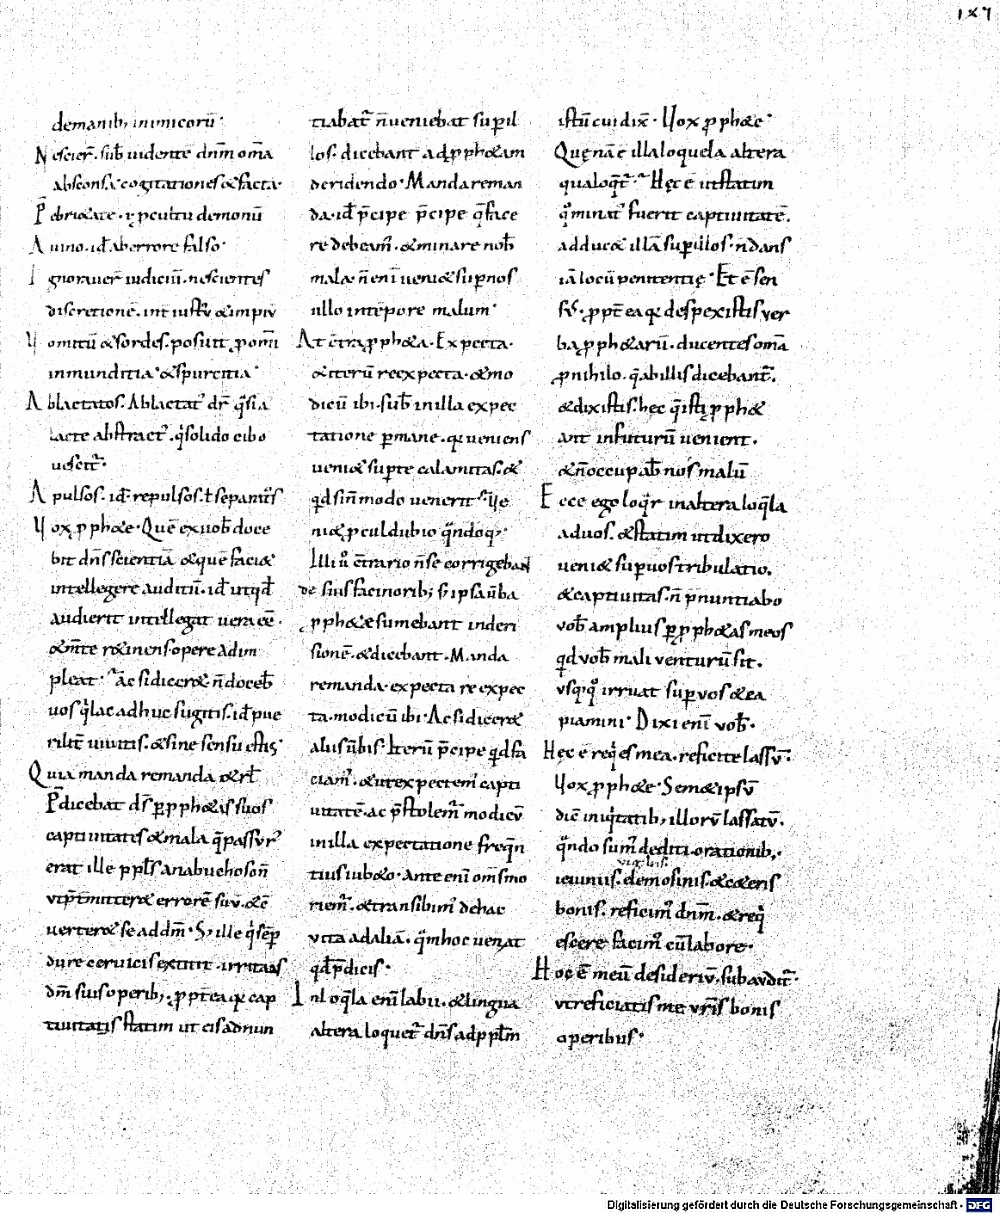 127
demanib; inimicorū·
Nescier̄. sub̄ uidente dnm̄ om̄a
absconsa cogitationes & facta·
P̄ ebrietate· ę pcultū demonū
A uino. id ab errore falso·
Ignorauer̄ iudiciū. nescientes
discretionē. int̄ iustū & impiū
Vomitū & sordes. posuit p om̄i
inmunditia & spurcitia·
Ablactatos. Ablactat᷒ dr̄ q̄si a
lacte abstract᷒. q̇ solido cibo
uescit᷒·
Apulsos. id ē repulsos. ł separat᷒os
Vox p pħae· Quē ex uob̄ doce
bit dn̄s scientiā & quē faci&
intellegere auditū. id ē ut qd̄
audierit intellegat uera eē·
& m̄te retinens opere adim
pleat· Ac si diceret n̄ doceb̄
uos q̇ lac adhuc sugitis. id pue
rilit᷒ uiuitis. & sine sensu estis·
Quia manda remanda & rł
P̄dicebat dn̄s p pphetis suos
captiuitates & mala q̄ passur᷒
erat ille ppłs a nabuchoson̄
ut p̄t mitteret errorē suū. & c̄
uerteret se ad dm̄· S; ille q̇ sep̄
dure ceruicis extitit. irritans
dm̄ suis operib;. p pt̄ ea q; cap
tiuitatis statim ut eis adnun
tiabat᷒ n̄ ueniebat sup il
los. dicebant ad p phetam
deridendo· Manda reman
da· id p̄cipe p̄cipe q̄ face
re debeam᷒. & minare nob̄
mala· n̄ enī ueni& sup nos
ullo intēpore malum·
At c̄tra p pheta· Expecta·
& iterū reexpecta· & mo
dicū ibi· sub̄ in illa expec
tatione p mane. q; ueniens
ueni& sup te calamitas. &
qd̄ sin̄ modo uenerit· Ve
ni& p cul dubio q̄ndoq;·
Illi u̇ c̄trario n̄ se corrigeban
de suis facinorib; s; ipsa ūba
p phetę sumebant in deri
sionē. & dicebant· Manda
remanda· expecta re expec
ta. modicū ibi· Ac si diceret
aliis ūbis. Iterū p̄cipe qd̄ fa
ciam᷒. & ut expectem᷒ capti
uitatē. ac p̄stolem᷒ modicū
in illa expectatione freq̄n
tius iub&o· ante enī om̄s mo
riem᷒. & transibim᷒ de hac
uita ad aliā. q̄m hoc ueniat
qd̄ p̄dicis·
In loq̄la enī labii. & lingua
altera loquet᷒ dn̄s ad ppłm
istū cui dix̄· Vox p phetę·
Quę nā ē illa loquela altera
qua loq̄t᷒· Hęc ē ut statim
q̇ minat᷒ fuerit captiuitatē.
adduc& illā sup illos. n̄ dans
iā locū penitentię· Et ē sen
sus. p pt̄ ea q; despexistis uer
ba p phetarū. ducentes om̄a
p nihilo. q̄ ab illis dicebant᷒.
& dixistis. hęc q̄ isti p phet
ant in futurū uenient.
& n̄ occupab̄ nos malū
Ecce ego loq̇r in altera loq̄la
ad uos. & statim ut dixero
ueni& sup uos tribulatio.
& captiuitas. n̄ p̄nuntiabo
uob̄ amplius p p phetas meos
qd̄ uob̄ mali uenturū sit.
usq; q̇ irruat sup uos & ea
piamini· Dixi enī uob̄·
Hęc ē req̇es mea. reficite lassū·
Vox p phetę· Semet ipsū
diē inuq̇tatib; illorū lassatū.
q̄ndo sum᷒ dediti orationib;.
uigiliis.
ieiuniis. elemosinis. & ceteris
bonis. reficim᷒ dnm̄. & req̇
escere facim᷒ eū labore·
Hoc ē meū desideriū. subaudit᷒·
ut reficiatis me ur̄is bonis
operibus·
Digitalisierung gefördert durch die Deutsche Forschungsgemeinschaft · DFG